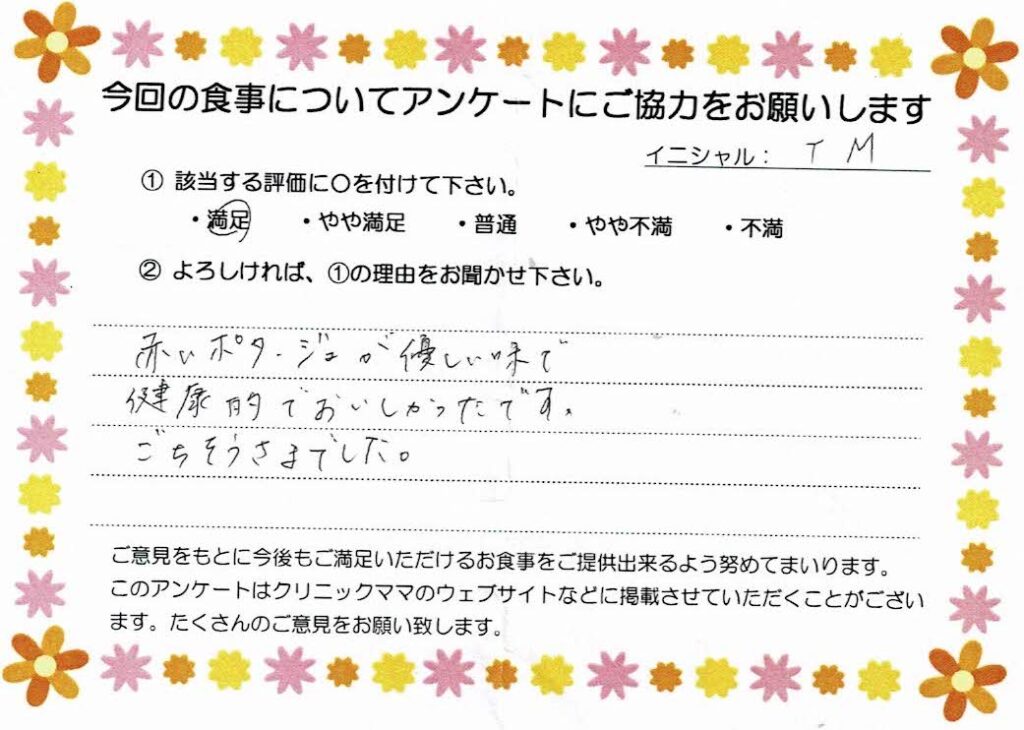 今回の食事についてアンケートにご協力をお願いします
イニシャル： T M
① 該当する評価に○を付けて下さい。
・満足 ・やや満足 ・普通 ・やや不満 ・不満
② よろしければ、①の理由をお聞かせ下さい。
赤いポタージュが優しい味で
健康的でおいしかったです。
ごちそうさまでした。
ご意見をもとに今後もご満足いただけるお食事をご提供出来るよう努めてまいります。
このアンケートはクリニックママのウェブサイトなどに掲載させていただくことがござい
ます。たくさんのご意見をお願い致します。